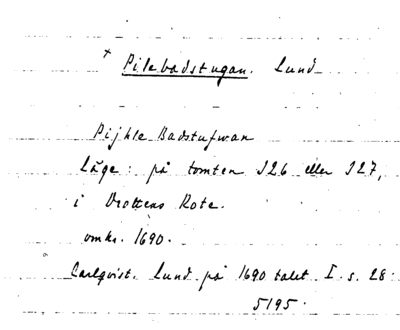 + Pilebadstugan. Lund
Pijhle Badstufwan
Läge: på tomten 326 eller 327,
i Drottens Rote.
omkr. 1690.
Carlqvist. Lund på 1690 talet I. s. 28.
5195.